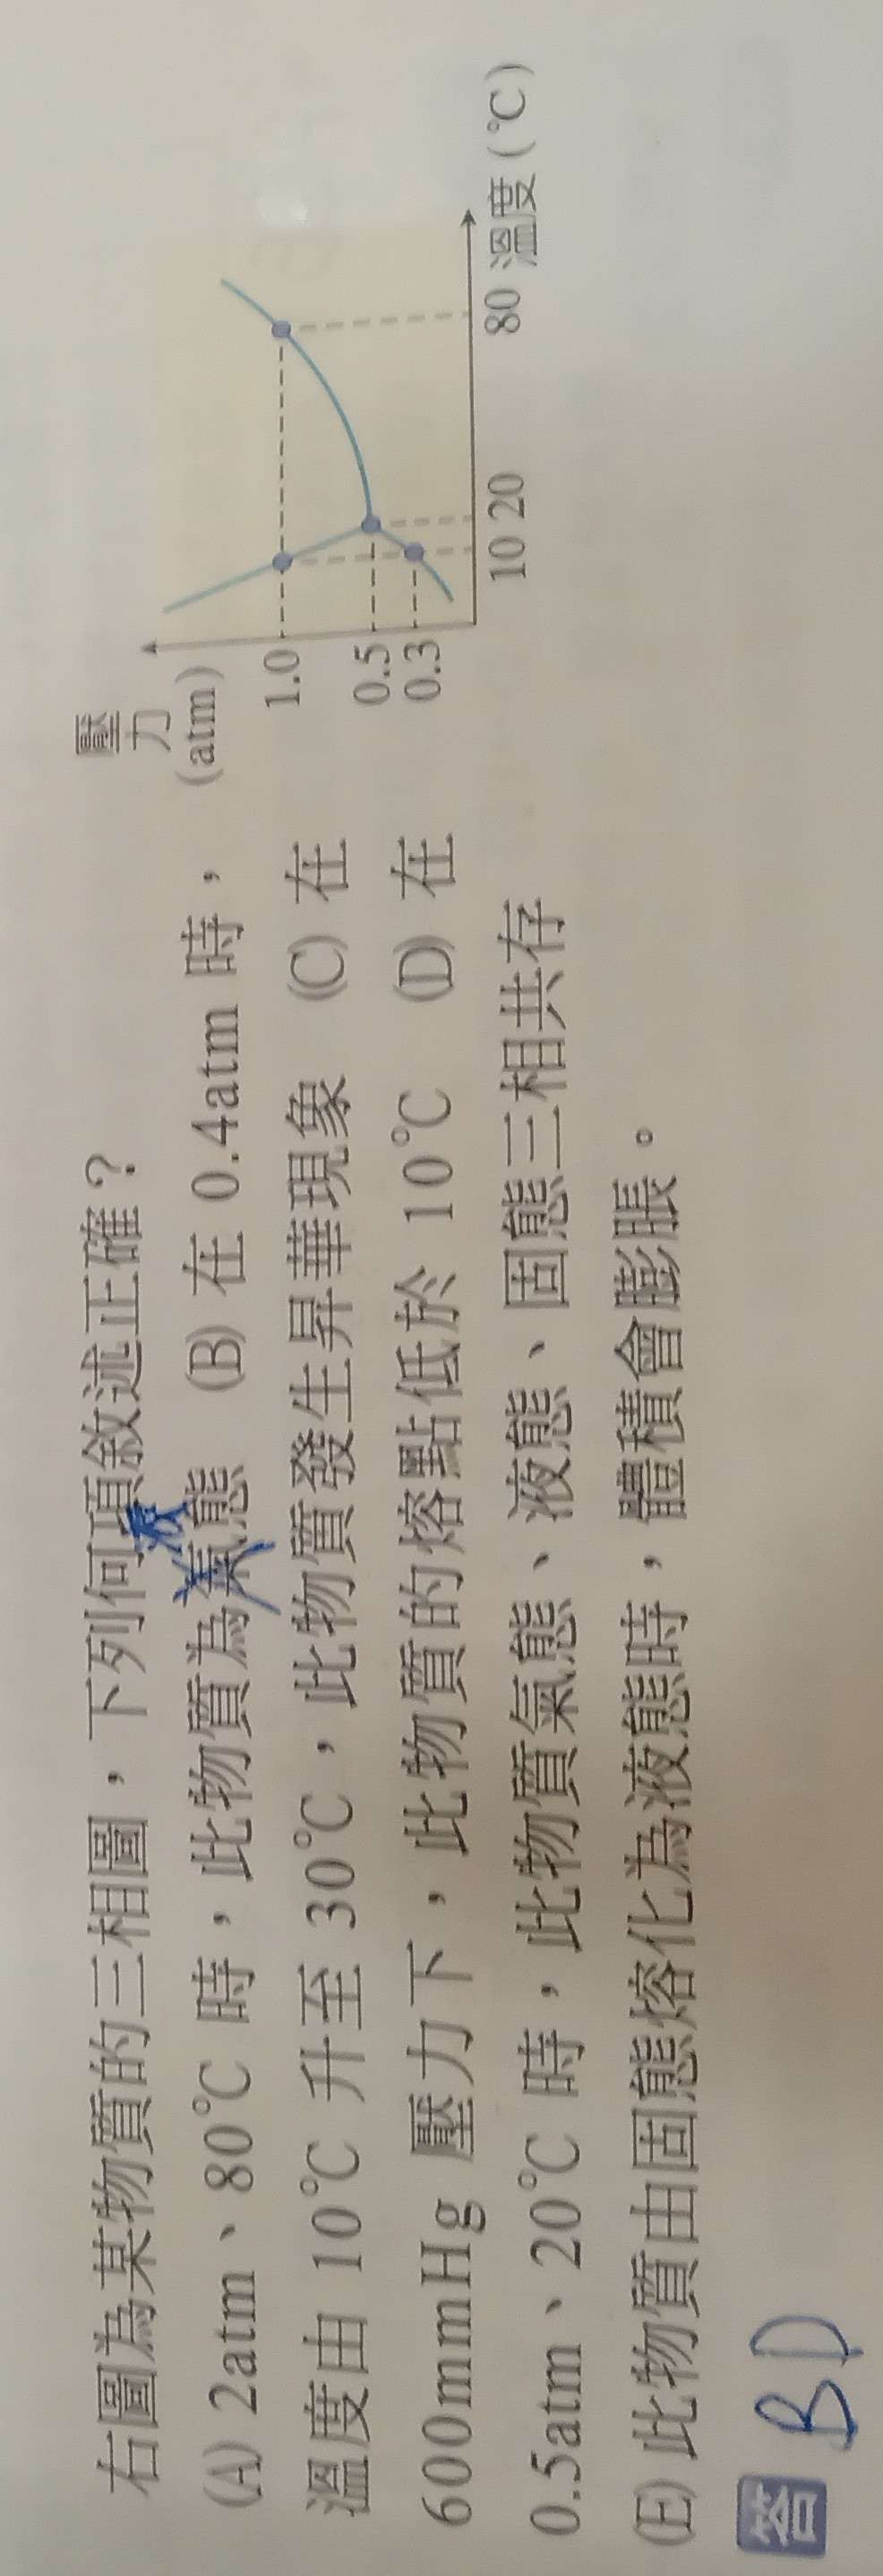 右圖為某物質的三相圖，下列何項敘述正確？
(A) 2atm、80℃ 時，此物質為氣態 (B) 在 0.4atm 時，
液
溫度由 10℃ 升至 30℃，此物質發生昇華現象 (C) 在
600mmHg 壓力下，此物質的熔點低於 10℃ (D) 在
0.5atm、20℃ 時，此物質氣態、液態、固態三相共存
(E) 此物質由固態熔化為液態時，體積會膨脹。
答 BD
壓
力
(atm)
1.0
0.5
0.3
10 20 80 溫度(℃)